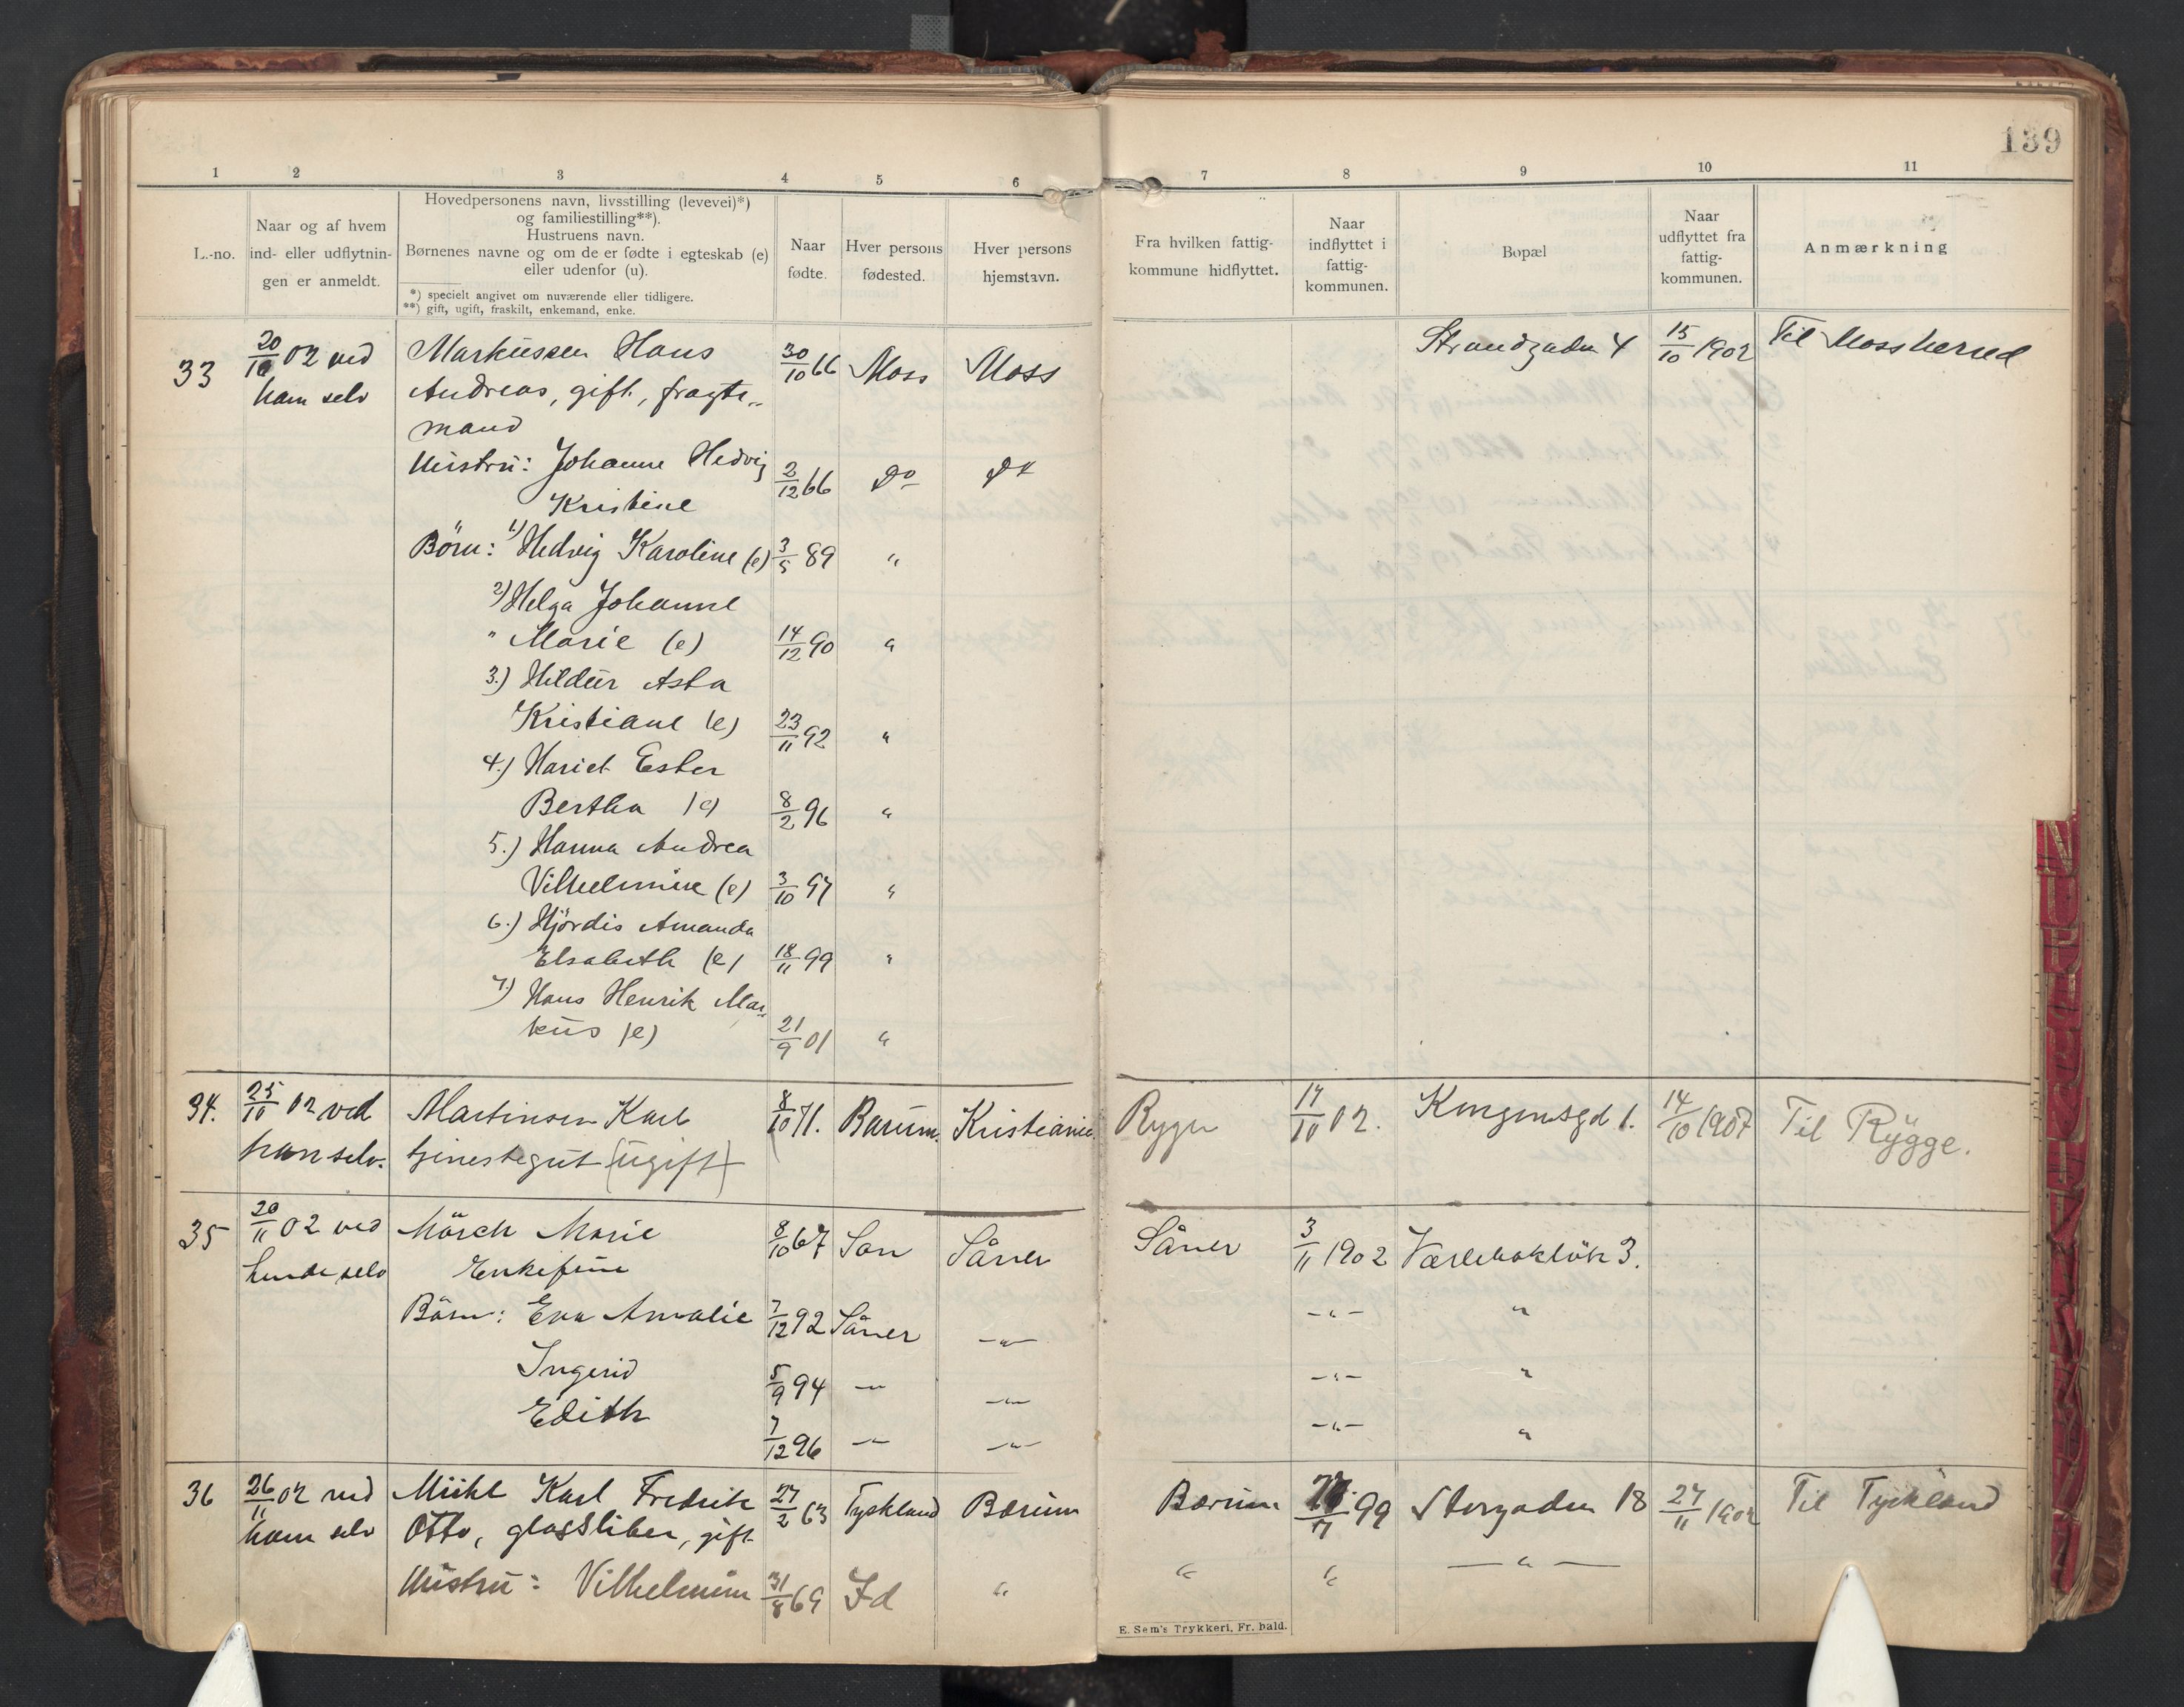 139
1 2 3 4 5 6 7 8 9 10 11
L.-no.
Naar og af hvem
ind- eller udflytnin-
gen er anmeldt.
Hovedpersonens navn, livsstilling (levevei)*)
og familiestilling**).
Hustruens navn.
Børnenes navne og om de er fødte i egteskab (e)
eller udenfor (u).
*) specielt angivet om nuværende eller tidligere.
**) gift, ugift, fraskilt, enkemand, enke.
Naar
fødte.
Hver persons
fødested.
Hver persons
hjemstavn.
Fra hvilken fattig-
kommune hidflyttet.
Naar
indflyttet i
fattig-
kommunen.
Bopæl
Naar
udflyttet fra
fattig-
kommunen.
Anmærkning
33 20/10 02 ved Markussen Hans 30/10 66 Moss Moss Strandgaden 4 15/10 1902 Til Moss herred
ham selv Andreas, gift, fragte-
mand
Hustru: Johanne Hedvig 2/12 66 Do
Kristine
Børn: 1) Hedvig Karoline (e) 3/5 89 "
2) Helga Johanne
" Marie (e) 14/12 90 "
3.) Hildur Asta
Kristiane (e) 23/11 92 "
4.) Hariet Ester
Bertha (e) 8/2 96 "
5.) Hanna Andrea
Vilhelmine (e) 3/10 97 "
6.) Hjördis Amanda
Elsabeth (e) 18/11 99 "
7.) Hans Henrik Mar-
kus (e) 21/9 01 "
34. 25/10 02 ved Martinsen Karl 8/10 71. Barum. Kristiania Rygge 17/10 02. Kongensgd 1. 14/10 1907 Til Rygge.
ham selv. tjenestegut (ugift)
35 20/11 02 ved Mörch Marie 8/10 67 Son Såner Såner 3/11 1902 Værlebakken 3.
hende selv Enkefrue
Börn: Eva Amalie 7/12 92 Såner -"- -"- "
Ingerid 5/9 94 -"- -"- -"- "
Edith 7/12 96 -"- -"- -"- "
36 26/11 02 ved Karl Fredrik 27/2 63 Tyskland Bærum Bærum 99 Storgaden 18 27/11 1902 Til Tyskland
ham selv Otto, glassliber, gift
Hustru: Vilhelmine 31/8 69 Id " " " -"-
E. Sem's Trykkeri, Fr. hald.